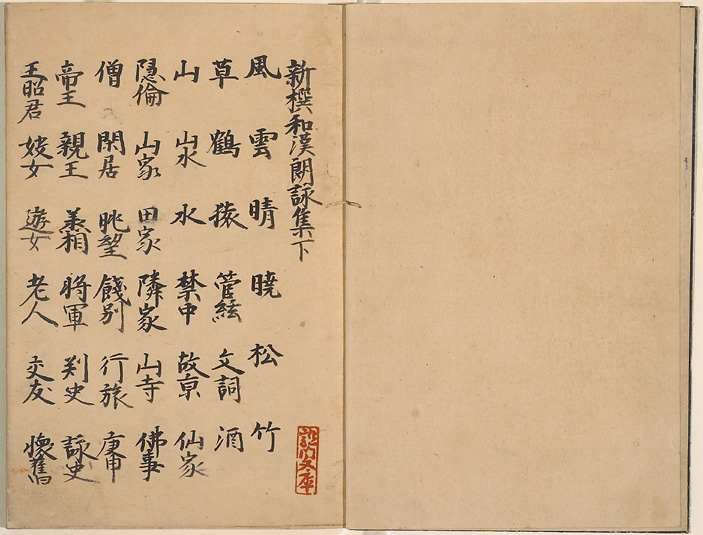 新撰和漢朗詠集下
風 雲 晴 暁 松 竹
草 鶴 猿 管絃 文詞 酒
山 山水 水 禁中 故京 仙家
隠倫 山家 田家 隣家 山寺 佛事
僧 閑居 眺望 餞別 行旅 庚申
帝王 親王 丞相 将軍 刺史 詠史
王昭君 妓女 遊女 老人 交友 懐舊
文庫